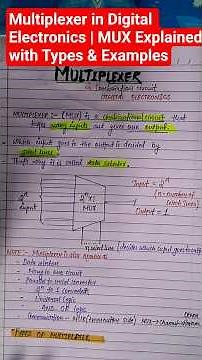 Multiplexer in Digital
Electronics | MUX Explained
with Types & Examples
MULTIPLEXER
DIGITAL ELECTRONICS
MULTIPLEXER :- (MUX) is a combinational circuit that
takes many inputs and gives one output.
Which input goes to the output is decided by
select lines
That's why it is called data selector.
2ⁿ
input
2ⁿ x 1
MUX
Input = 2ⁿ
Output = 1
n select line (decides which input goes to output)
NOTE :- Multiplexer is also known as
- Data selector
- Many to one circuit
- Parallel to serial converter
- 2ⁿ to 1 converter
- Universal logic
- AND OR logic
TYPES OF MULTIPLEXER